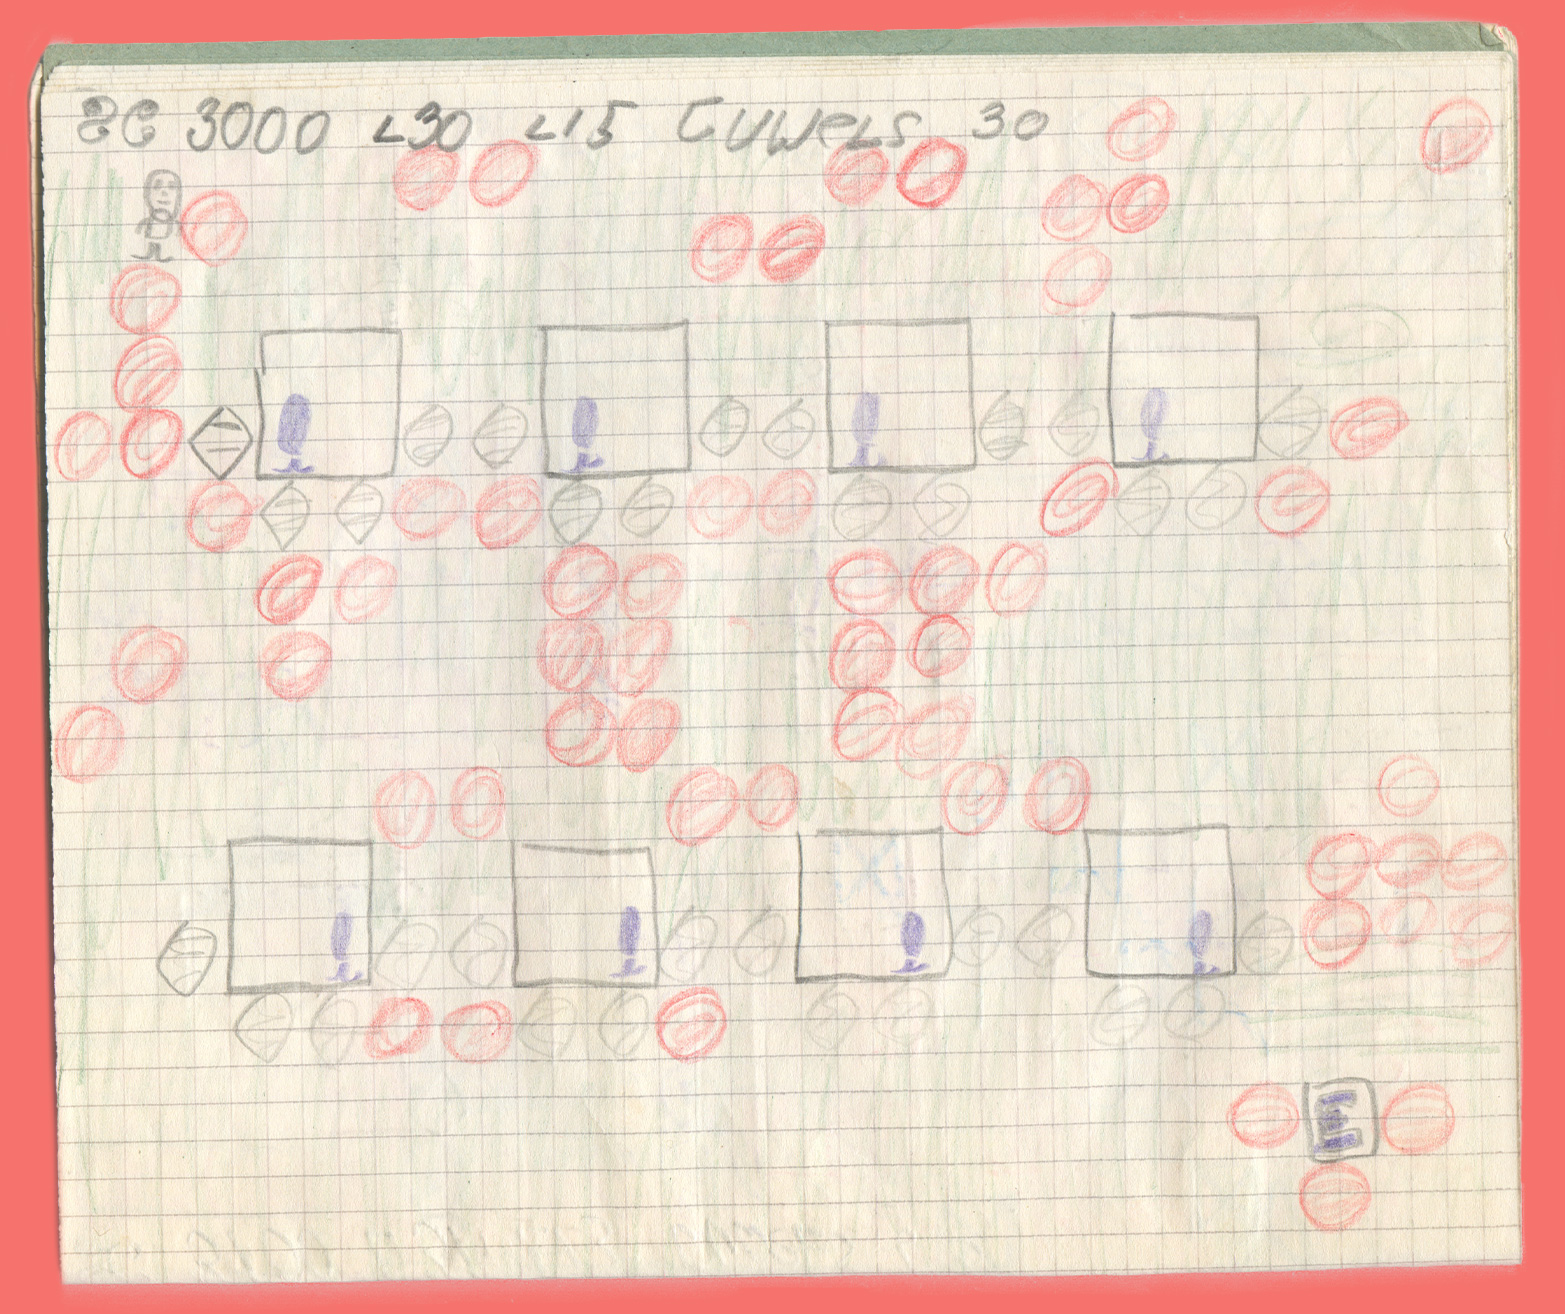 SC 3000 L30 L15 CUWELS 30
E